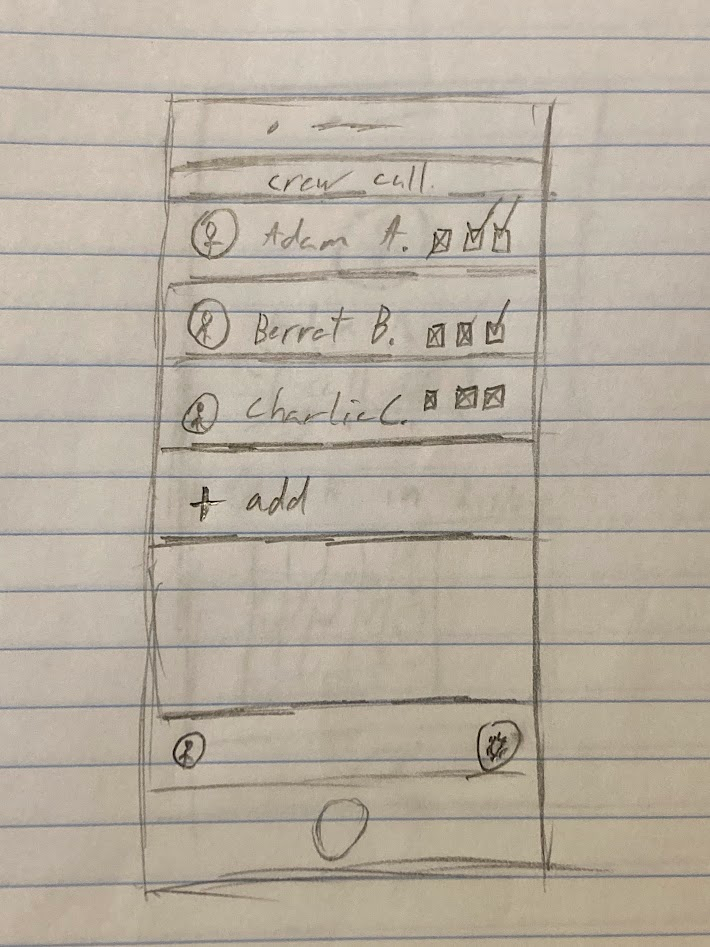 crew call.
Adam A.
Berret B.
Charlie C.
+ add